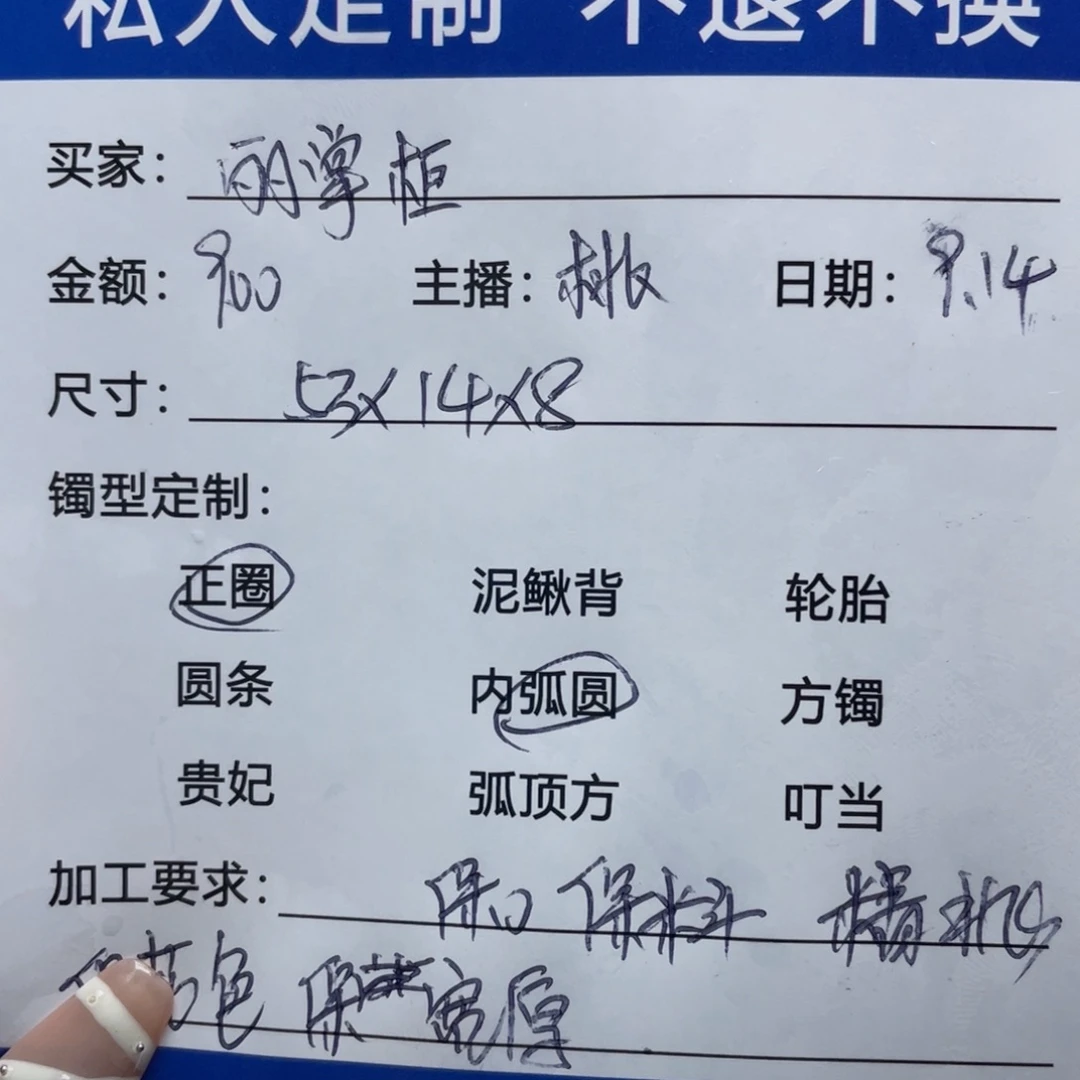 私人定制 不退不换
买家：丽掌柜
金额：900 主播：桃 日期：9.14
尺寸：53×14×8
镯型定制：
正圈 泥鳅背 轮胎
圆条 内弧圆 方镯
贵妃 弧顶方 叮当
加工要求：保口 保料 精
色 保 宽厚